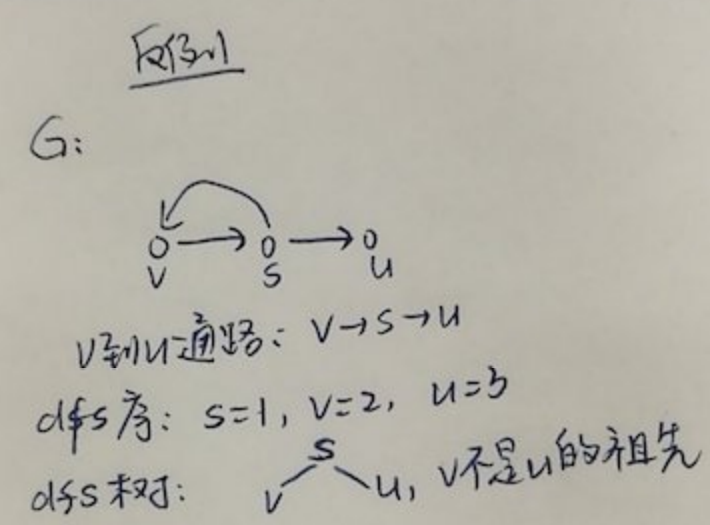 反例
G:
V S U
V到U通路: V→S→U
dfs序: S=1, V=2, U=3
S
dfs树: V U, V不是U的祖先